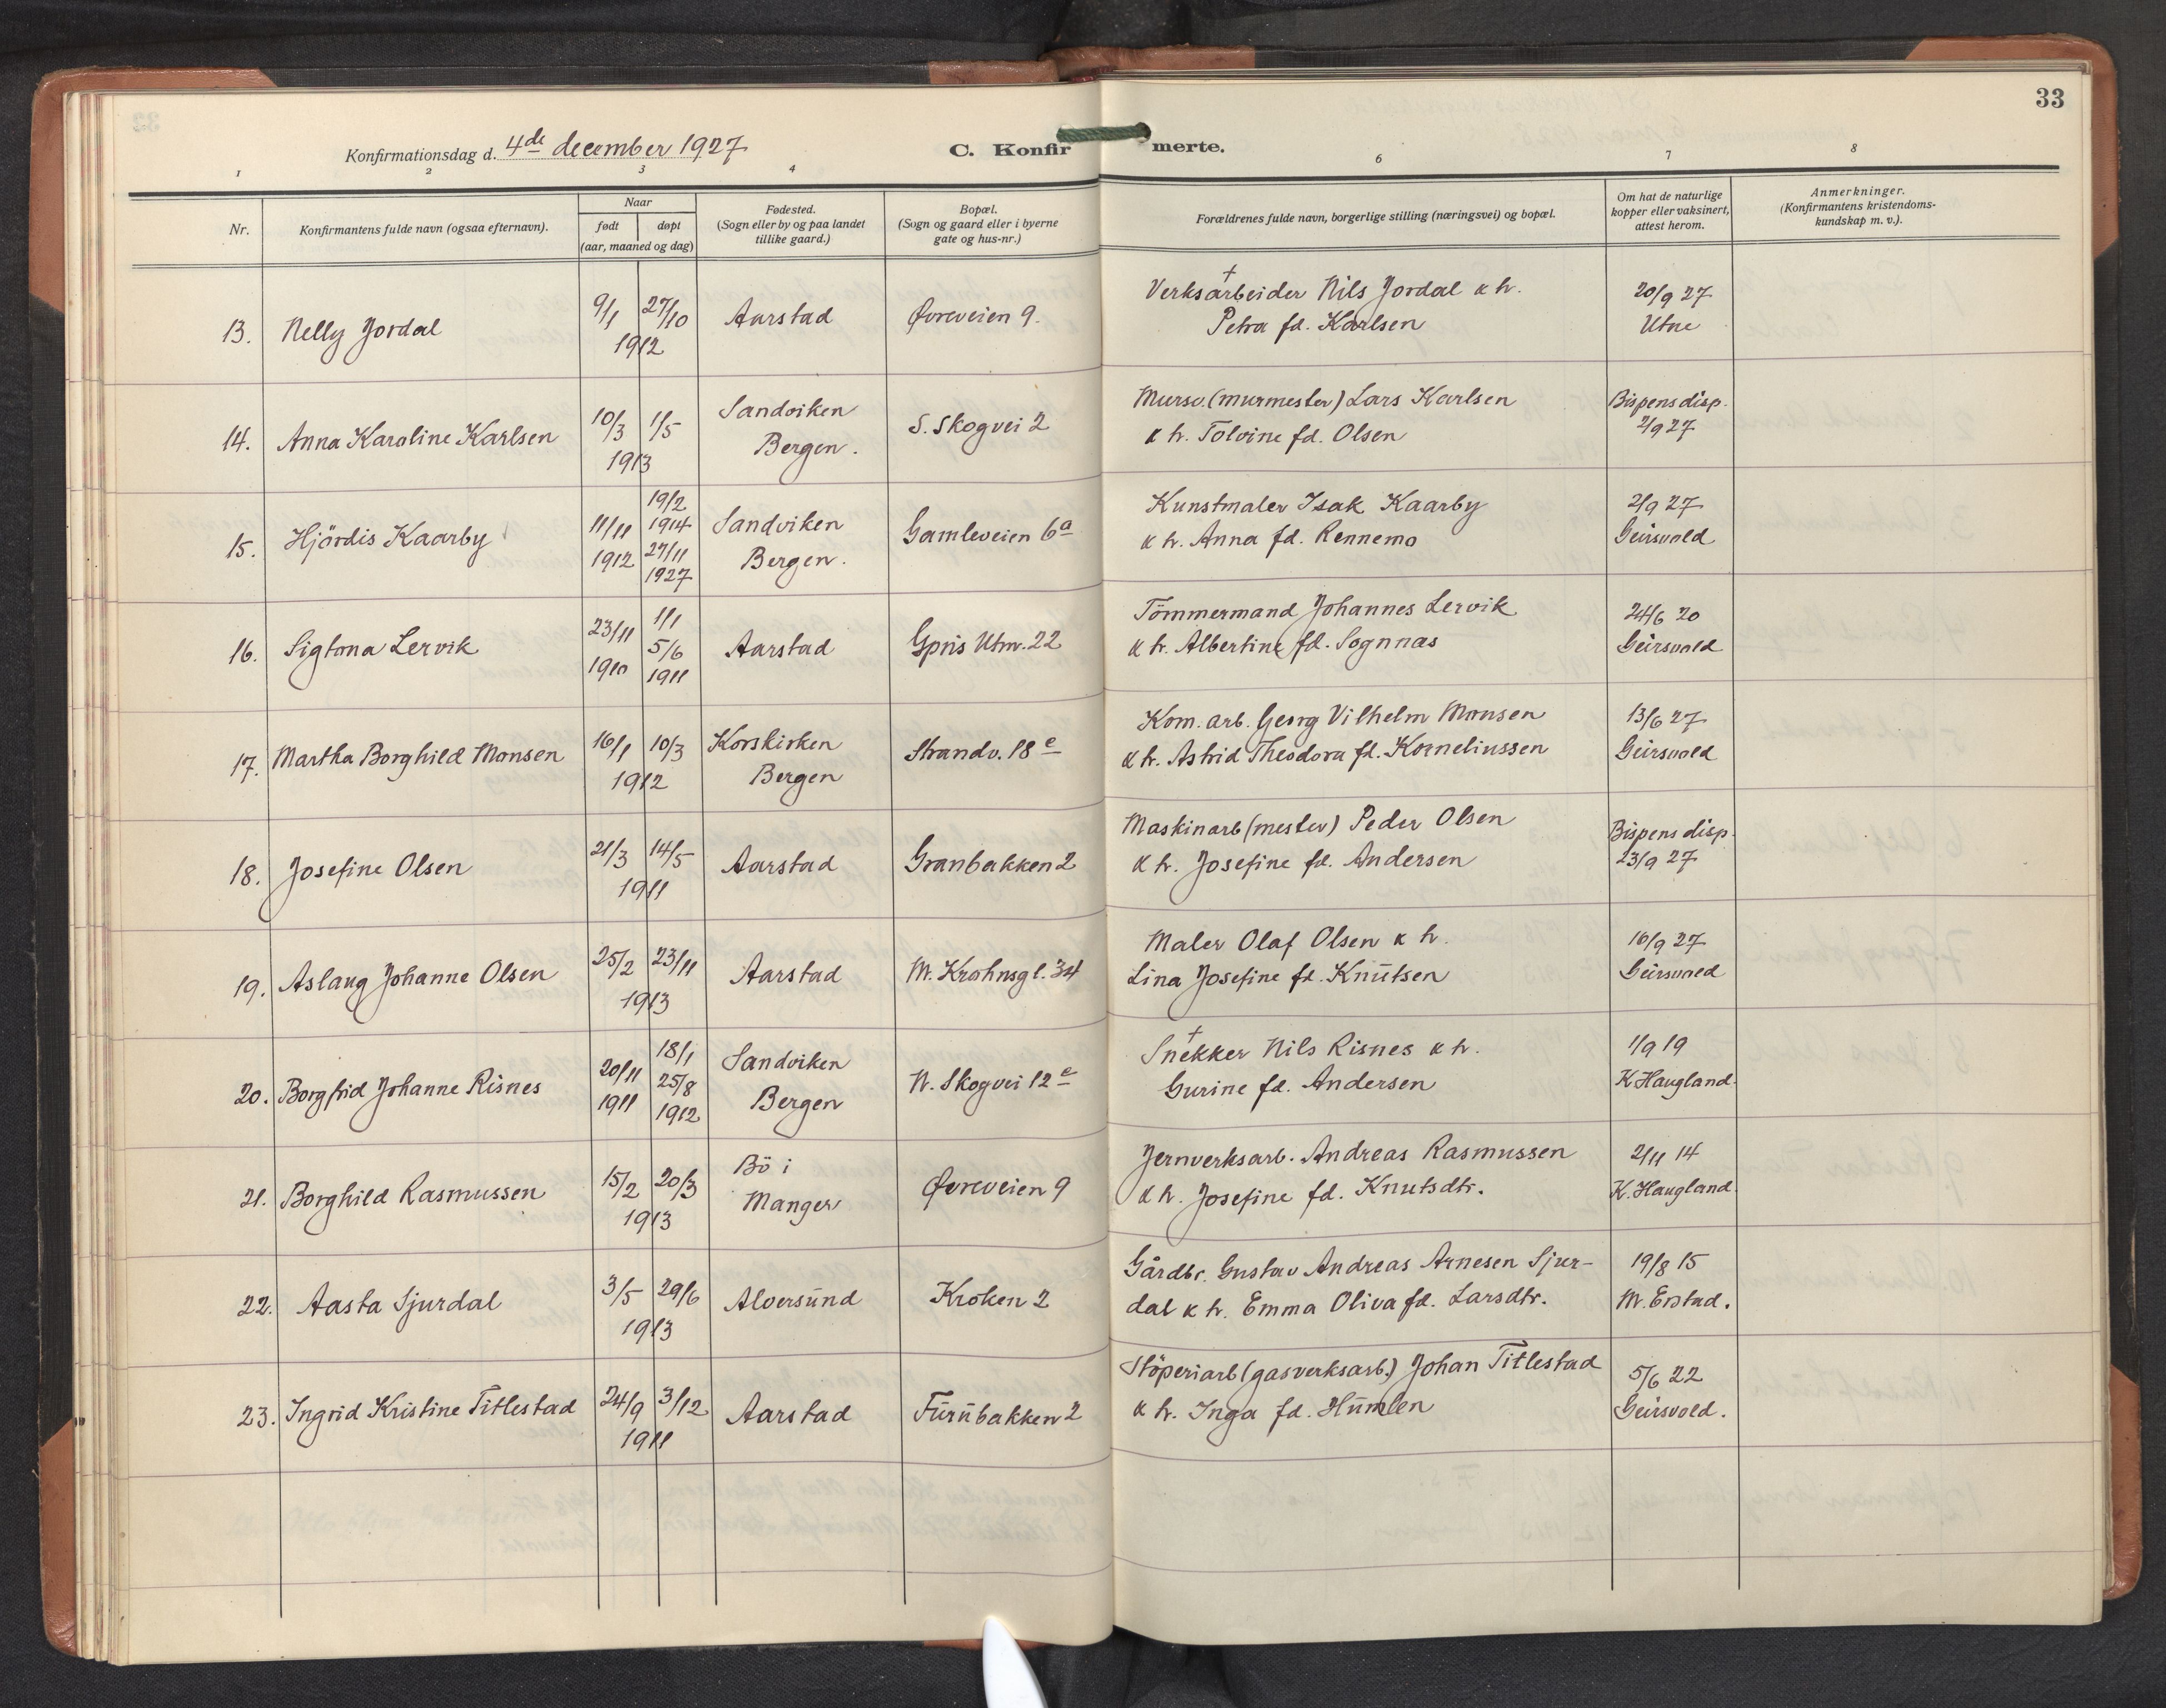 33
Konfirmationsdag d. 4de december 1927
C. Konfirmerte.
1 2 3 4 6 7 8
Nr.
Konfirmantens fulde navn (ogsaa efternavn).
Naar
født døpt
(aar, maaned og dag)
Fødested.
(Sogn eller by og paa landet
tillike gaard.)
Bopæl.
(Sogn og gaard eller i byerne
gate og hus-nr.)
Forældrenes fulde navn, borgerlige stilling (næringsvei) og bopæl.
Om hat de naturlige
kopper eller vaksinert,
attest herom.
Anmerkninger.
(Konfirmantens kristendoms-
kundskap m. v.).
13. Nelly Jordal
9/1 27/10
1912
Aarstad
Øvreveien 9.
†
Verksarbeider Nils Jordal & h.
Petra fd. Karlsen
20/9 27
Utne
14. Anna Karoline Karlsen
10/3 1/5
1913
Sandviken
Bergen.
S. Skogvei 2
Mursv. (murmester) Lars Karlsen
& h. Tolvine fd. Olsen
Bispens disp.
2/9 27
15. Hjördis Kaarby
11/11
1912
19/2
1914
27/11
1927
Sandviken
Bergen.
Gamleveien 6a
Kunstmaler Isak Kaarby
& h. Anna fd. Rennemo
2/9 27
Geirsvold
16. Sigtona Lervik
23/11
1910
1/1
5/6
1911
Aarstad
Gpris Utm. 22
Tömmermand Johannes Lervik
& h. Albertine fd. Sognnas
24/6 20
Geirsvold
17. Martha Borghild Monsen
16/1 10/3
1912
Korskirken
Bergen
Strandv. 18e
Kom. arb. Georg Vilhelm Monsen
& h. Astrid Theodora fd. Korneliussen
13/6 27
Geirsvold
18. Josefine Olsen
21/3 14/5
1911
Aarstad
Granbakken 2
Maskinarb (mester) Peder Olsen
& h. Josefine fd. Andersen
Bispens disp.
23/9 27
19. Aslaug Johanne Olsen
25/2 23/11
1913
Aarstad
M. Krohnsgt. 34
Maler Olaf Olsen & h.
Lina Josefine fd. Knutsen
16/9 27
Geirsvold
20. Borgfrid Johanne Risnes
20/11
1911
18/1
25/8
1912
Sandviken
Bergen
N. Skogvei 12e
†
Snekker Nils Risnes & h.
Gurine fd. Andersen
1/9 19
K Haugland.
21. Borghild Rasmussen
15/2 20/3
1913
Bö i
Manger
Øvreveien 9
Jernverksarb. Andreas Rasmussen
& h. Josefine fd. Knutsdtr.
2/11 14
K. Haugland.
22. Aasta Sjurdal
3/5 29/6
1913
Alversund
Kroken 2
Gårdbr. Gustav Andreas Arnesen Sjur-
dal & h. Emma Oliva fd. Larsdtr.
19/8 15
M.
23. Ingrid Kristine Titlestad
24/9 3/12
1911
Aarstad
Furubakken 2
Stöperiarb (gasverksarb.) Johan Titlestad
& h. Inga fd. Humlen
5/6 22
Geirsvold.